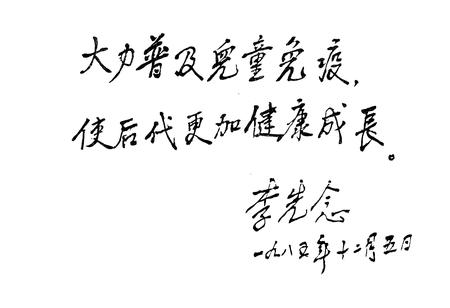 大力普及兒童免疫，
使后代更加健康成長。
李先念
一九八五年十二月五日